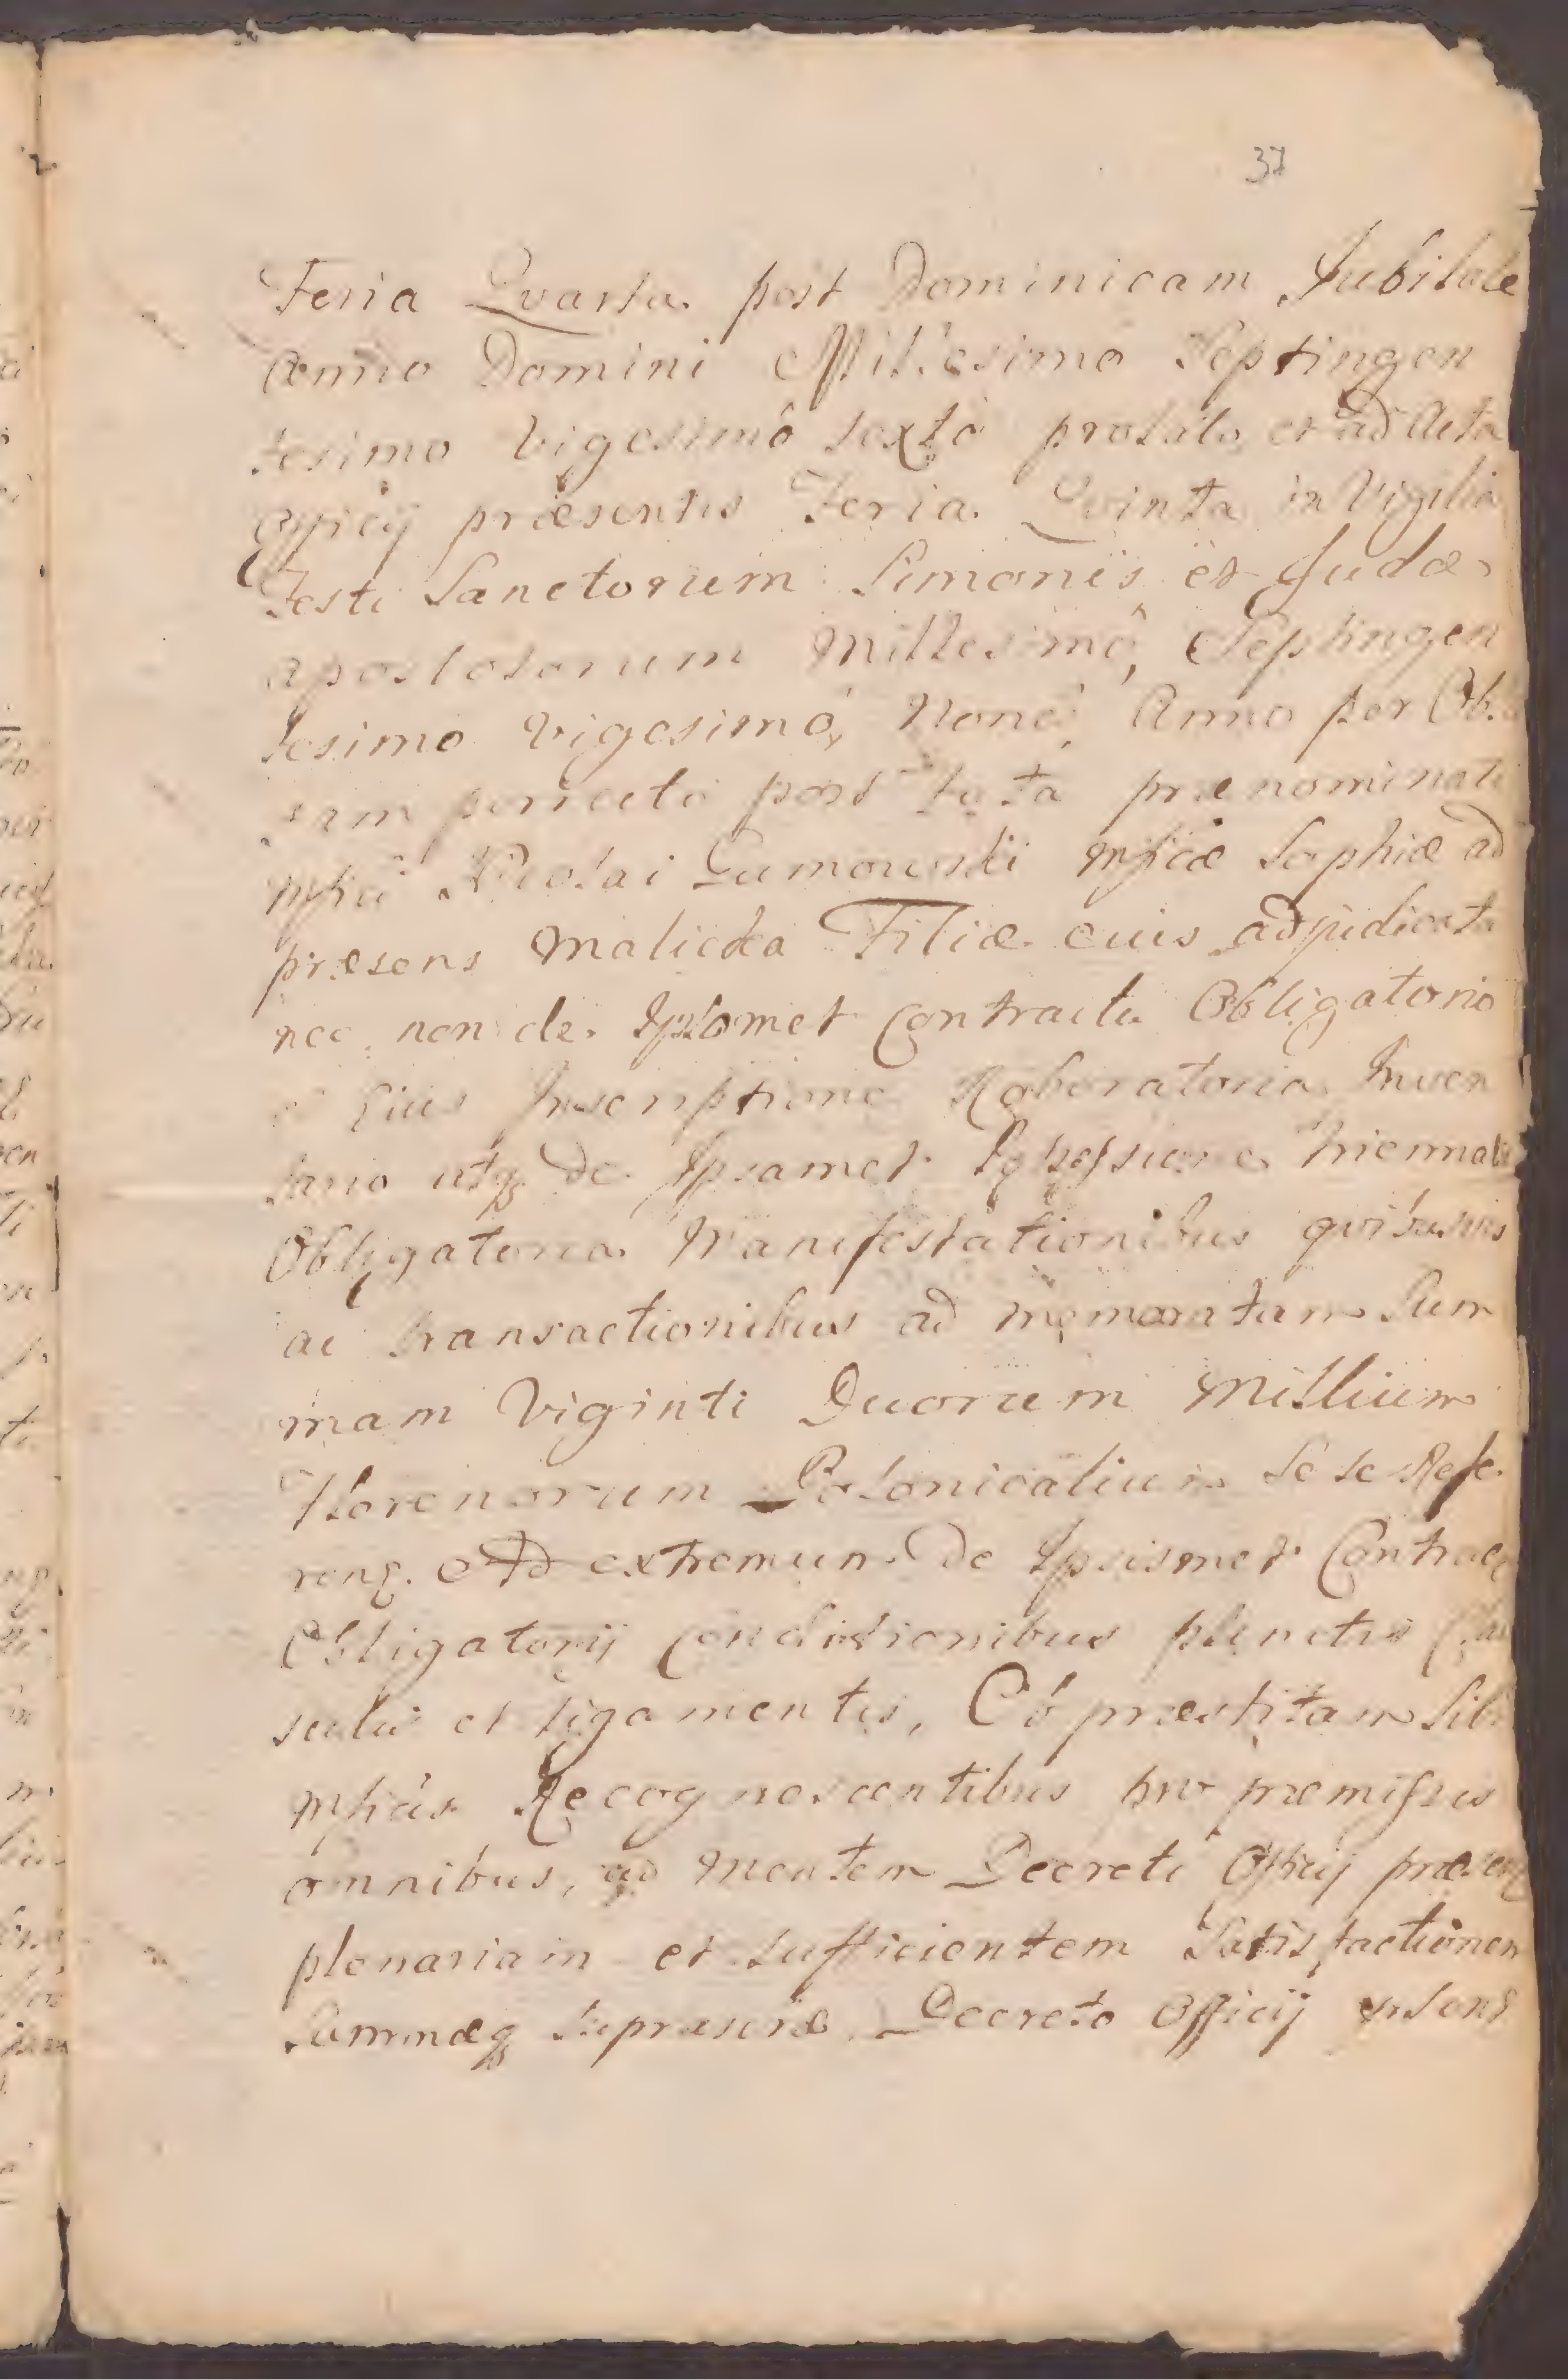 37
Feria Qvarta post Dominicam Jubilate
Anno Domini Millesimo Septingen
tesimo vigesimô sextô probato et ad Acta
Officij præsentis Feria Qvinta in Vigilia
Festi Sanctorum Simonis et Judæ
Apostolorum Millesimô, Septingen
tesimo vigesimô, Nonô, Anno per Ob
post fata prænominati
Mfici Nicolai Gumowski Mficæ Sophiæ ad
præsens Malicka Filiæ eius adjudicata
nec non de Ipsomet Contractu Obligatorio
Eius Inscriptione Roboratoria Inven
tario utq de Ipsamet triennali
Obligatoria Manifestationibus qvibusvis
ac transactionibus ad memoratam Sum
mam Viginti Duorum Millium
Florenorum Polonicalium Se se Refe
renq. Ad extremum de Ipsismet Contrac
Obligatorij Conditionibus punctis Clau
sulis et ligamentis, Ob præstitam Sibi
Mficis Recognoscentibus pro præmissis
omnibus, ad Mentem Decreti Officij præsen
plenariam et sufficientem Satisfactionem
Summæq supræscriæ Decreto Officij